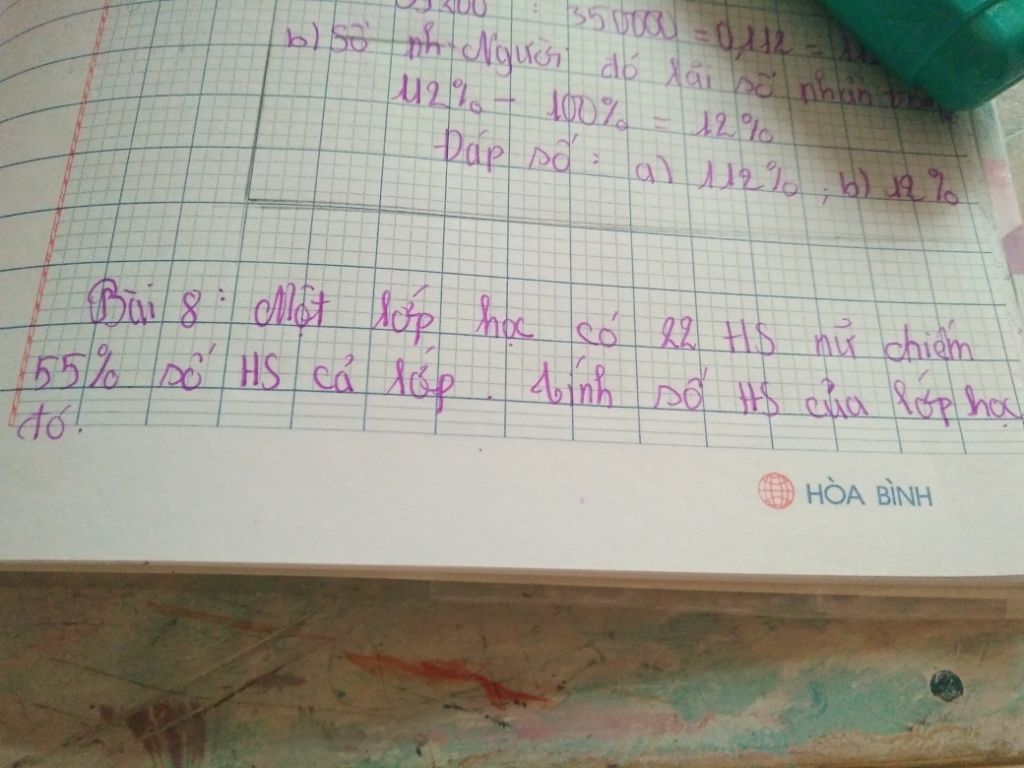 : 35000) = 0,112 =
b) Số nh Người đó lãi số phần trăm
112% - 100% = 12%
Đáp số: a) 112%; b) 12%
Bài 8: Một lớp học có 22 HS nữ chiếm
55% số HS cả lớp. tính số HS của lớp học
đó.
HÒA BÌNH